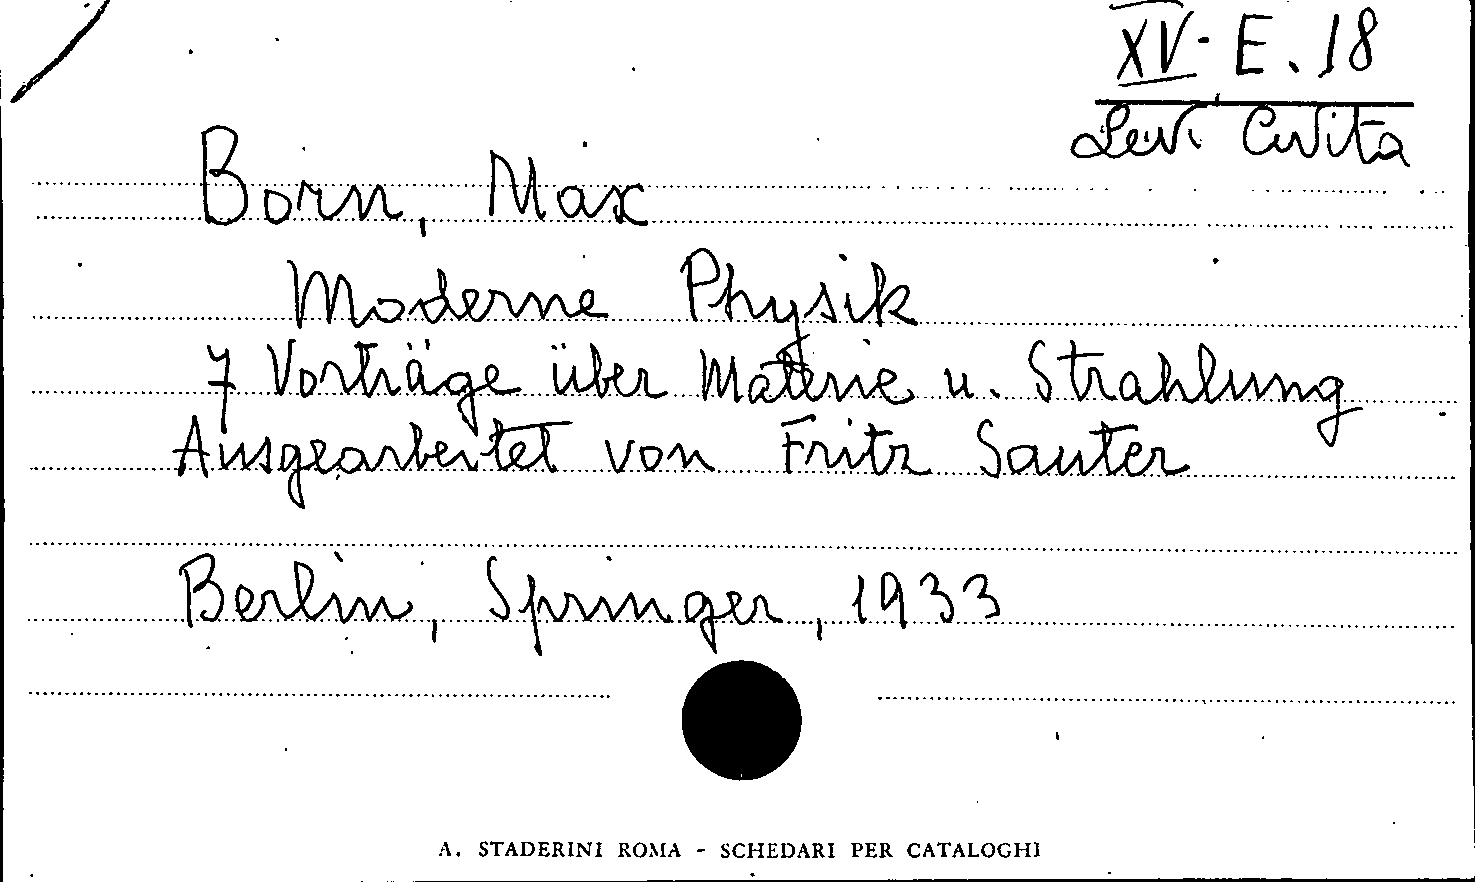 XV-E.18
Levi Civita
Born, Max
Moderne Physik
7 Vorträge über Materie u. Strahlung
Ausgearbeitet von Fritz Sauter
Berlin, Springer, 1933
A. STADERINI ROMA - SCHEDARI PER CATALOGHI